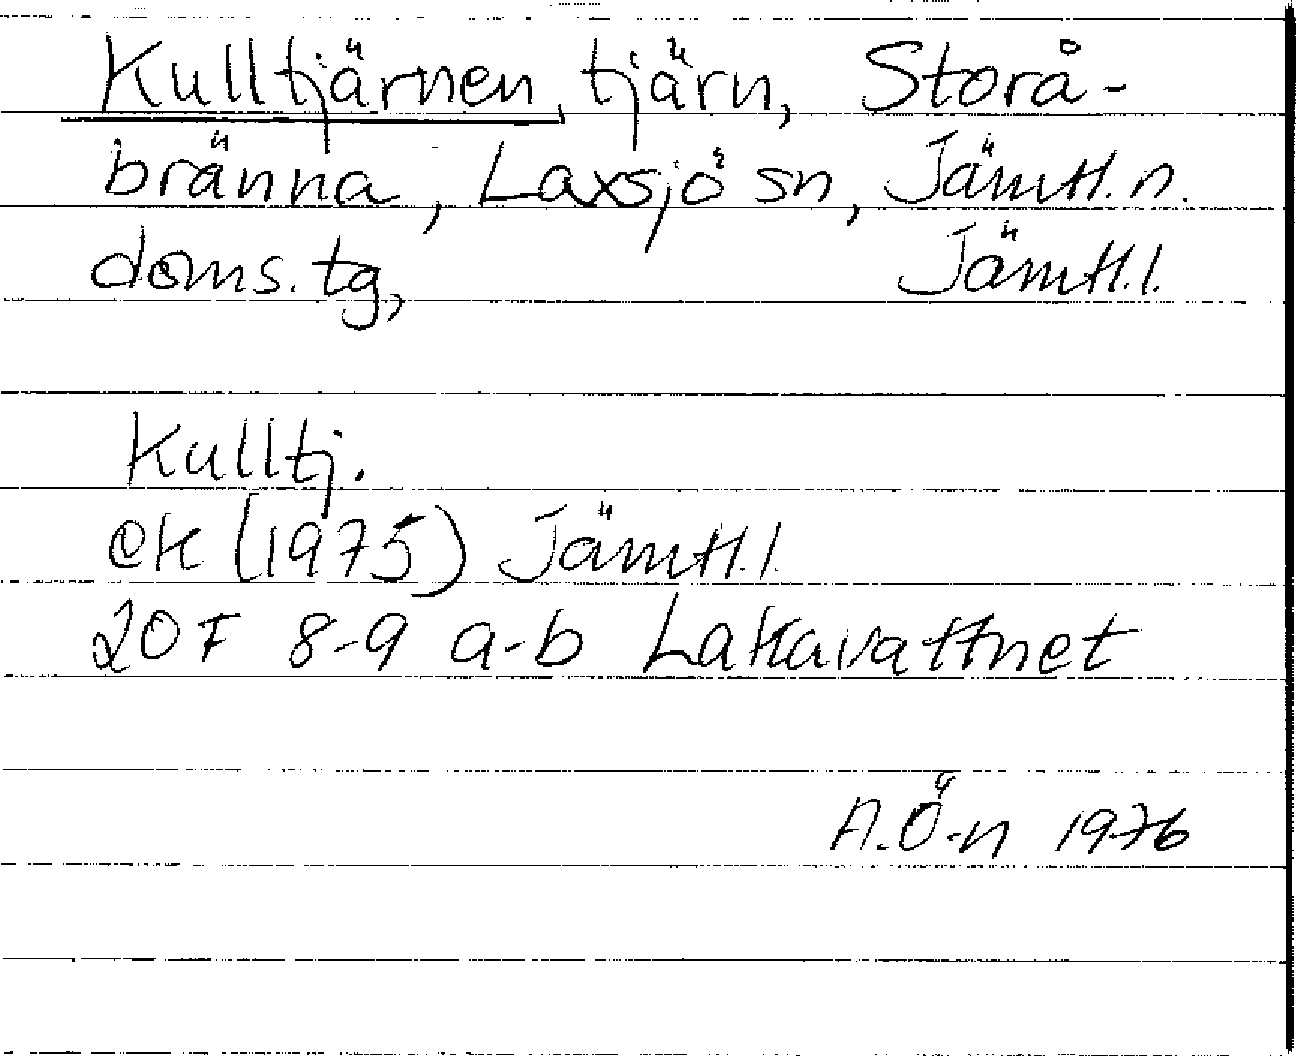 Kulltjärnen, tjärn, Storå-
bränna, Laxsjö sn, Jämtl. n.
doms. tg, Jämtl. l.
Kulltj.
ek (1975) Jämtl. l.
20 F 8-9 a-b Lakavattnet
A. Ö-n 1976